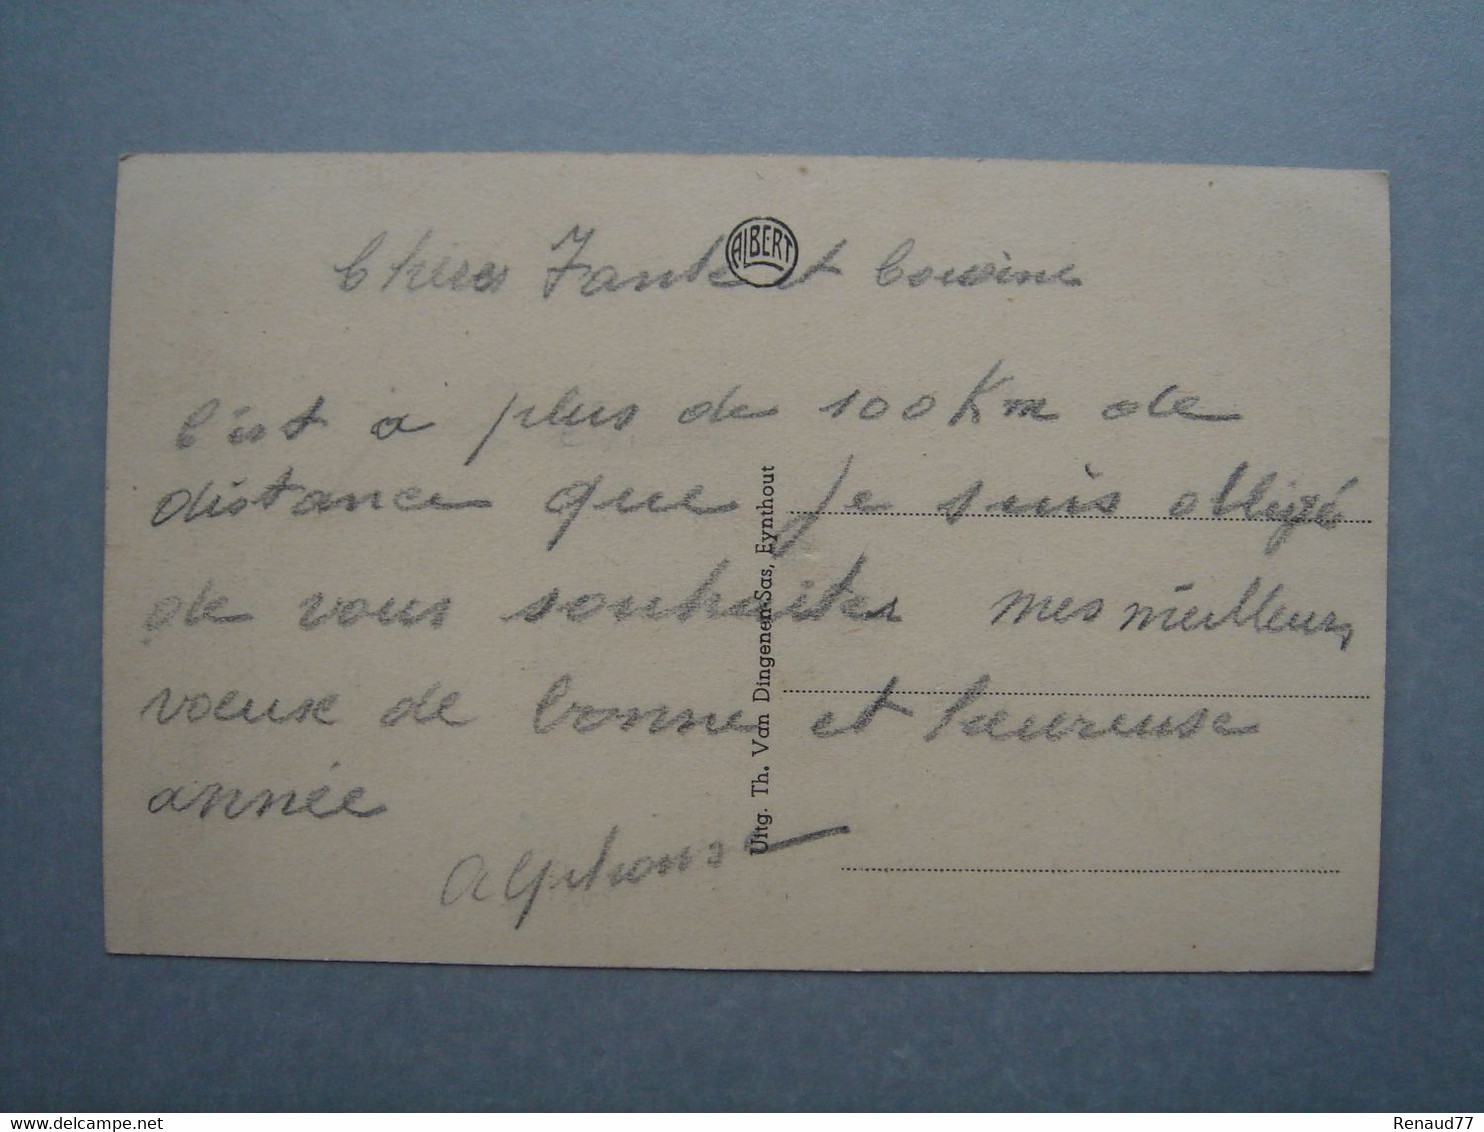 ALBERT
Chères Tante et Cousine
C'est à plus de 100 Km de
distance que je suis obligé
de vous souhaiter mes meilleurs
voeux de bonne et heureuse
année
Alphonse
Uitg. Th. Van Dingenen-Sas, Eynthout
delcampe.net
Renaud77